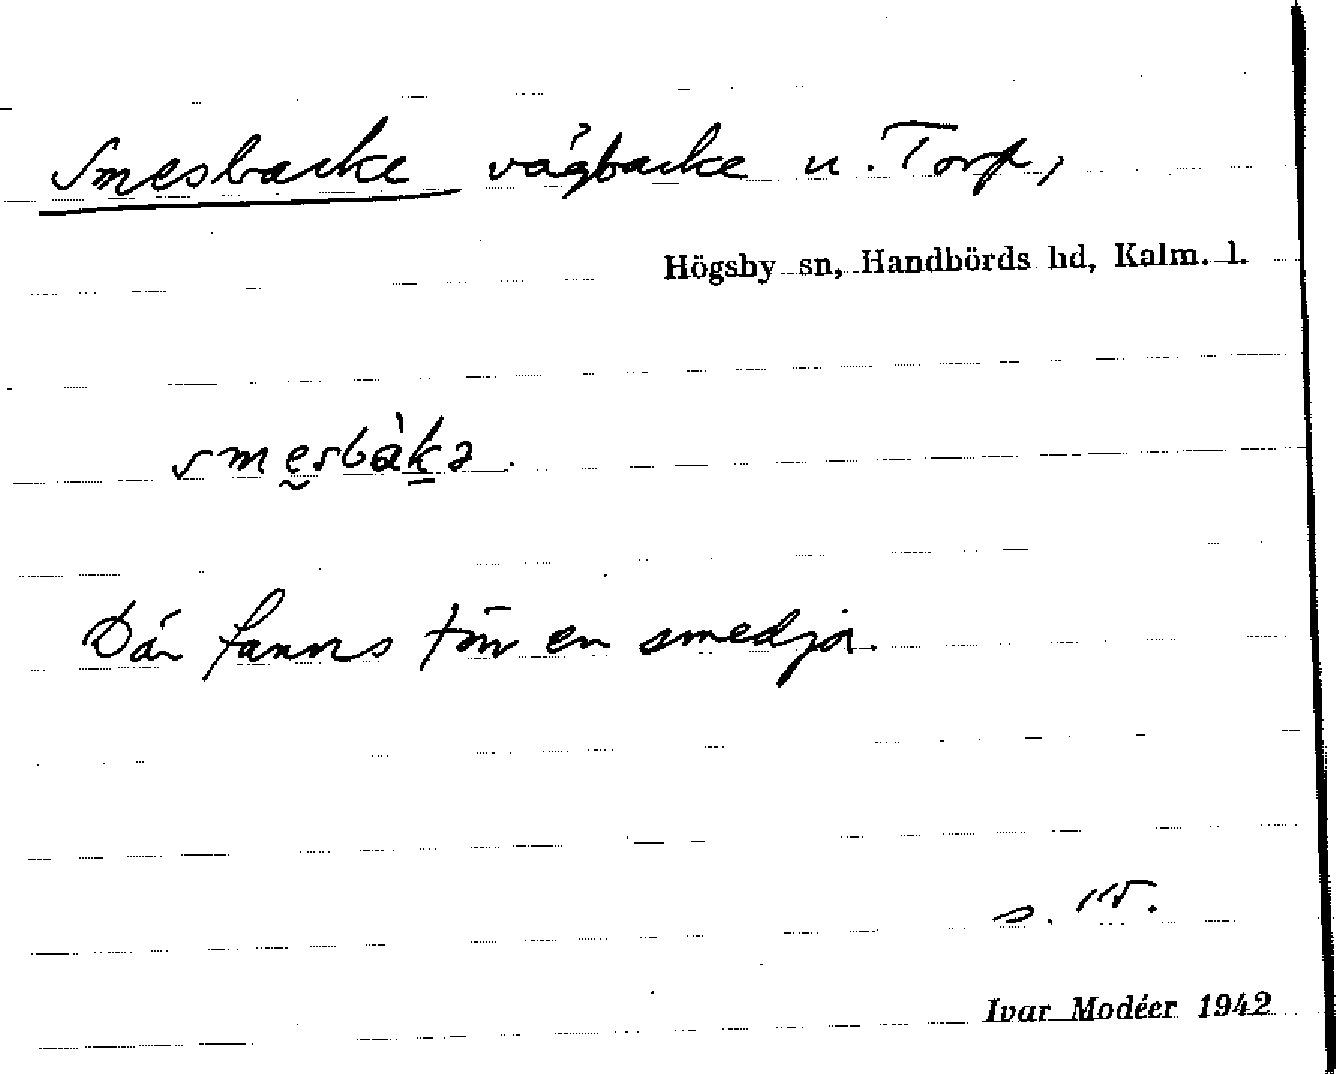 Smesbacke vägbacke u. Torp,
Högsby sn, Handbörds hd, Kalm. l.
smesbàkə.
Där fanns förr en smedja.
Ivar Modéer 1942